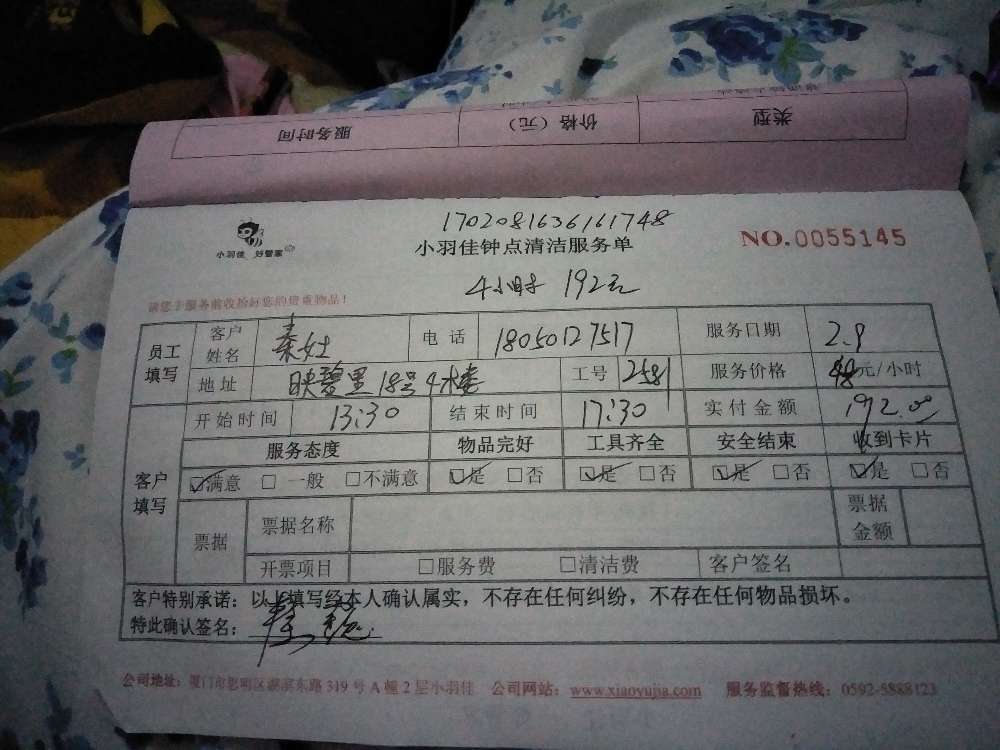 服务时间 价格（元） 类型
1702081636161748
小羽佳 好管家
小羽佳钟点清洁服务单
NO.0055145
4小时 192元
请您于服务前收拾好您的贵重物品！
员工填写 客户姓名 秦女士 电话 18050127517 服务日期 2.9
地址 映碧里18号4楼 工号 2581 服务价格 48元/小时
客户填写 开始时间 13:30 结束时间 17:30 实付金额 192.00
服务态度 物品完好 工具齐全 安全结束 收到卡片
☑满意 □一般 □不满意 ☑是 □否 ☑是 □否 ☑是 □否 ☑是 □否
票据 票据名称 票据金额
开票项目 □服务费 □清洁费 客户签名
客户特别承诺：以上填写经本人确认属实，不存在任何纠纷，不存在任何物品损坏。
特此确认签名：
公司地址：厦门市思明区湖滨东路319号A幢2层小羽佳 公司网站：www.xiaoyujia.com 服务监督热线：0592-5888123